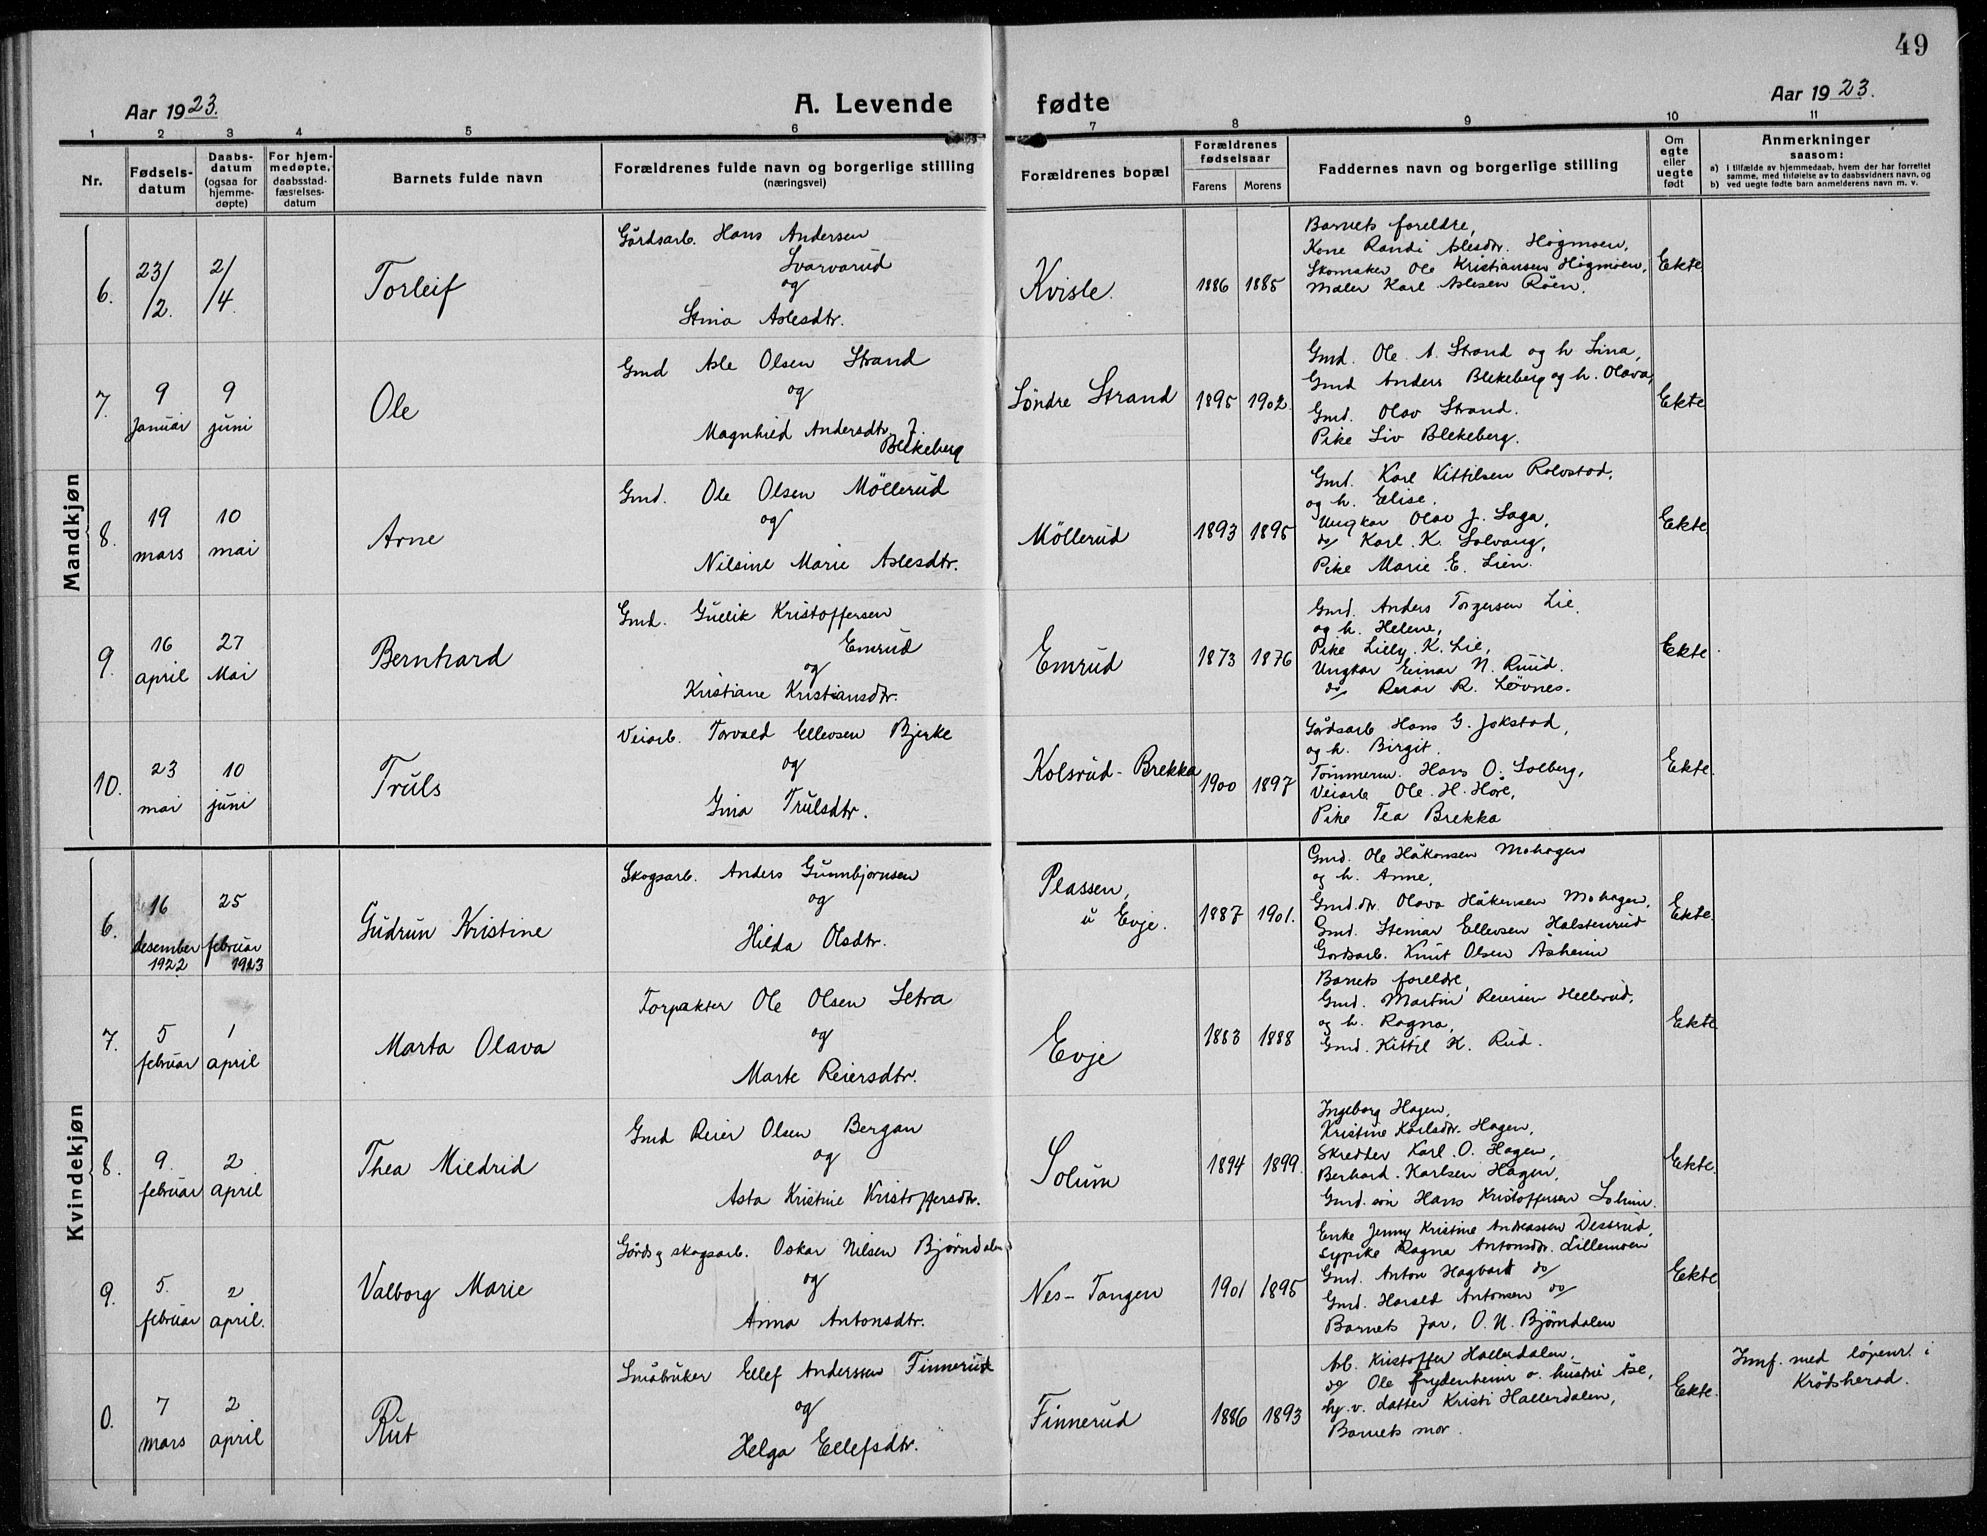 49
Aar 1923.
A. Levende fødte
Aar 1923.
1 2 3 4 5 6 7 8 9 10 11
Nr.
Fødsels-
datum
Daabs-
datum
(ogsaa for
hjemme-
døpte)
For hjem-
medøpte,
daabsstad-
fæstelses-
datum
Barnets fulde navn
Forældrenes fulde navn og borgerlige stilling
(næringsvei)
Forældrenes bopæl
Forældrenes
fødselsaar
Farens Morens
Faddernes navn og borgerlige stilling
Om
egte
eller
uegte
født
Anmerkninger
saasom:
a) I tilfælde av hjemmedaab, hvem der har forrettet
samme, med tilføielse av to daabsvidners navn, og
b) ved uegte fødte barn anmelderens navn m. v.
Mandkjøn
6.
23/
/2.
2/
/4.
Torleif
Gårdsarb. Hans Andersen
Svarvarud
og
Stina Aslesdtr.
Kvisle.
1886 1885
Barnets foreldre,
Kone Randi Aslesdtr. Høgmoen,
Skomaker Ole Kristiansen Høgmoen,
Maler Karl Aslesen Røen.
Ekte
7.
9
januar
9
juni
Ole
Gmd Asle Olsen Strand
og
Magnhild Andersdtr. f.
Blekeberg
Søndre Strand
1895 1902.
Gmd. Ole A. Strand og h. Lina,
Gmd Anders Blekeberg og h. Olava,
Gmd. Olav Strand.
Pike Liv Blekeberg.
Ekte
8.
19
mars
10
mai
Arne
Gmd. Ole Olsen Möllerud
og
Nilsine Marie Aslesdtr.
Möllerud
1893 1895
Gmd. Karl Kittilsen Rolvstad,
og h. Elise.
Ungkar Olav J. Saga,
do/ Karl. K. Solvang,
Pike Marie E. Lien.
Ekte
9.
16
april
27
Mai
Bernhard
Gmd. Gullik Kristoffersen
Emrud
og
Kristiane Kristiansdtr.
Emrud
1873 1876
Gmd. Anders Torgersen Lie.
og h. Helene,
Pike Lilly. K. Lie,
Ungkar Einar N. Ruud.
do/ Reiar R. Løvnes.
Ekte
10.
23
mai
10
juni
Truls
Veiarb. Torvald Ellevsen Bjerke
og
Gina Trulsdtr.
Kolsrud-Brekka
1900 1897
Gårdsarb Hans G. Jokstad,
og h. Birgit.
Tömmerm. Hans O. Solberg,
Veiarb Ole. H. Hore,
Pike Tea Brekka
Ekte.
Kvindekjøn
6.
16
desember
1922
25
februar
1923
Gudrun Kristine
Skogsarb. Anders Gunnbjørnsen
og
Hilda Olsdtr.
Plassen,
u Evje.
1887 1901.
Gmd. Ole Håkonsen Mohagen
og h. Anne,
Gmd.dtr. Olava Håkensen Mohagen,
Gmd. Steinar Ellevsen Halstenrud
Gardsarb. Knut Olsen Åsheim
Ekte.
7.
5
februar
1
april
Marta Olava
Forpakter Ole Olsen Setra
og
Marte Reiersdtr.
Evje
1883 1888
Barnets foreldre,
Gmd. Martin Reiersen Hellerud,
og h. Ragna,
Gmd. Kittil K. Rud.
Ekte.
8.
9.
februar
2
april
Thea Mildrid
Gmd Reier Olsen Bergan
og
Asta Kristine Kristoffersdtr.
Solum
1894 1899.
Ingeborg Hagen,
Kristine Karlsdtr. Hagen,
Skredder Karl. O. Hagen,
Berhard. Karlsen Hagen,
Gmd. søn Hans Kristoffersen Solum.
Ekte.
9.
5.
februar
2
april.
Valborg Marie
Gårds og skogsarb. Oskar Nilsen Bjørndalen
og
Anna Antonsdtr.
Nes-Tangen
1901 1895
Enke Jenny Kristine Andreassen Desserud,
Sypike Ragna Antonsdtr. Lillemoen
Gmd. Anton Hagbart do/
Gmd. Harald Antonsen do/
Barnets far, O. N. Bjørndalen
Ekte
0.
7
mars
2
april
Rut
Småbruker Ellef Anderssen Finnerud
og
Helga Ellefsdtr.
Finnerud
1886 1893
Arb. Kristoffer Hallerdalen,
do Ole Frydenheim o. hustru Åse,
hj.v. datter Kristi Hallerdalen,
Barnets mor.
Ekte.
Innf. med løpenr. i
Krødsherad.